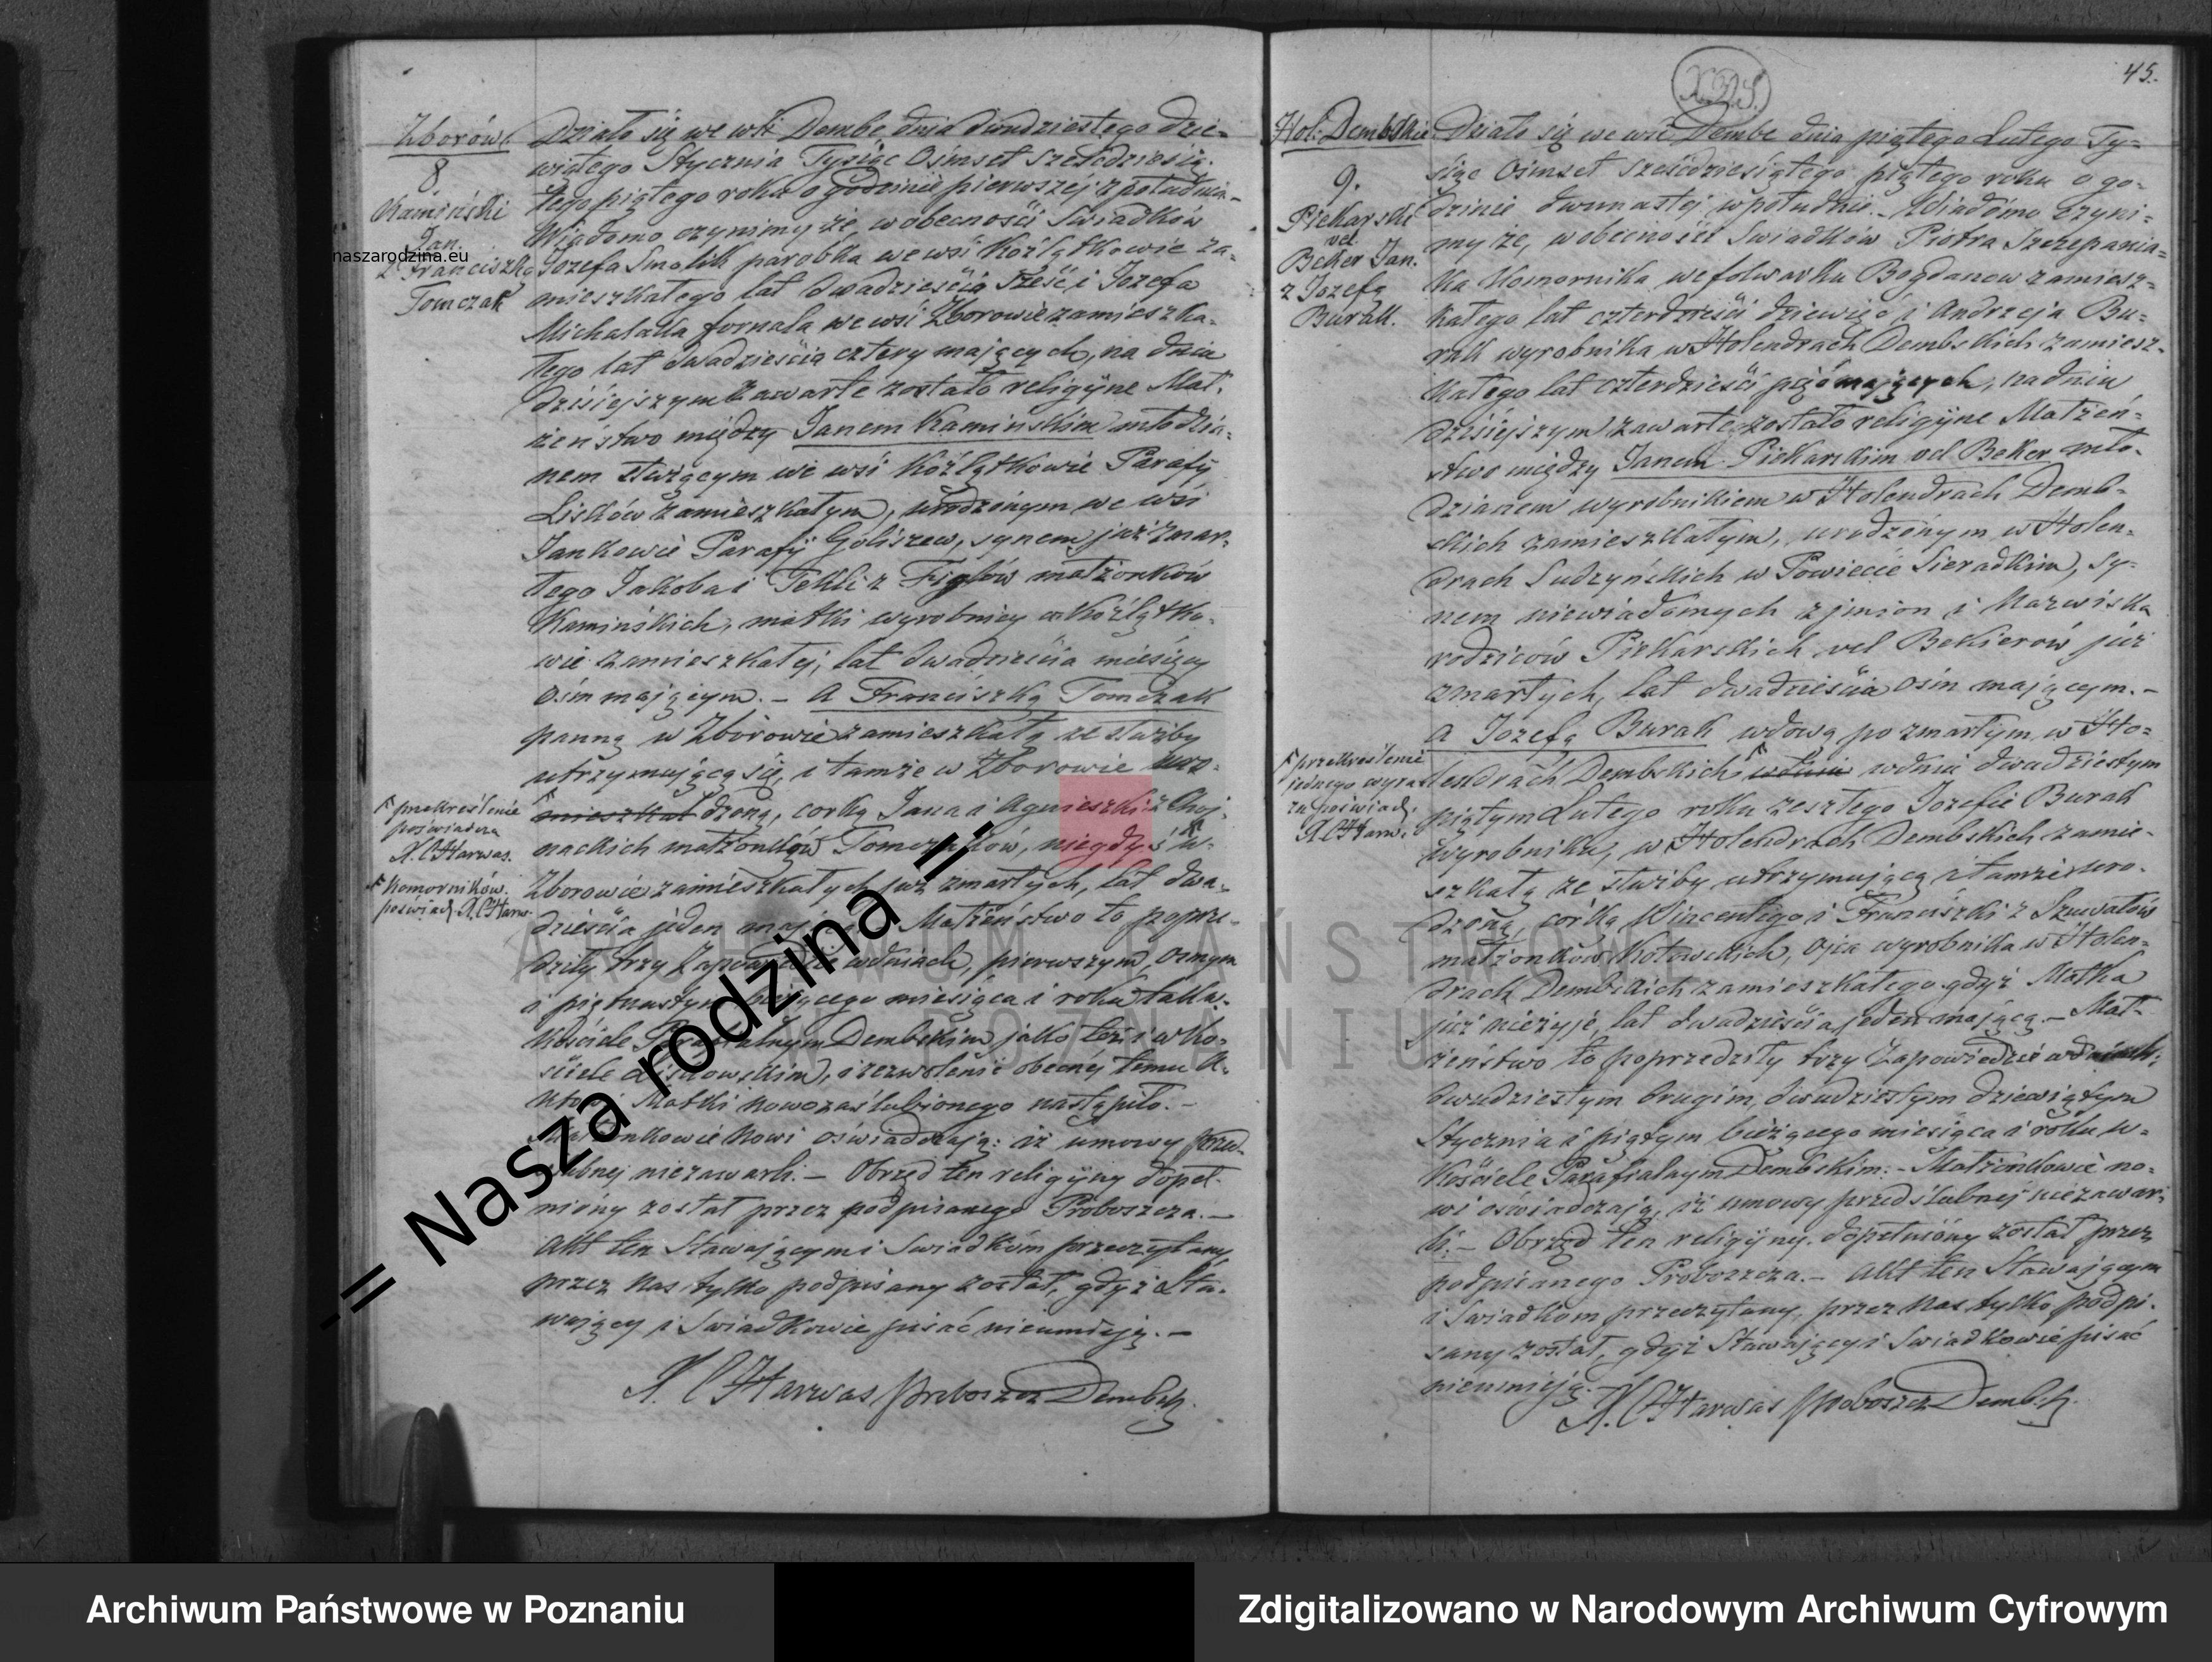 Zborów.
8
Kamiński
Jan.
z Franciszką
Tomczak
Działo się we wsi Dembe dnia dwudziestego dzie=
wiątego Stycznia Tysiąc Ośmset sześcdziesią-
tego piątego roku o godzinie pierwszéj z południa.-
Wiadomo czynimy że, w obecności Swiadków
Jozefa Smolik parobka we wsi Koźlątkowie za=
mieszkałego lat dwadzieścia sześć i Jozefa
Michalaka fornala we wsi Zborowie zamieszka=
łego lat dwadzieścia cztery mających, na dniu
dzisiejszym zawarte zostało religijne Mał=
żeństwo między Janem Kamińskim młodzia=
nem służącym we wsi Koźlątkowie Parafij
Lisków zamieszkałym, urodzonym we wsi
Jankowie Parafij Goliszew, synem już zmar=
łego Jakoba i Tekli z Figlów małżonków
Kamińskich, matki wyrobnicy w Koźlątko=
wie zamieszkałej, lat dwadzieścia miesięcy
ośm mającym. - a Franciszką Tomczak
panną w Zborowie zamieszkałą ze służby
utrzymującą się, i tamże w Zborowie uro=
mieszkał dzoną, corką Jana i Agnieszki z Choj=
nackich małżonków Tomczaków, niegdyś w
Zborowie zamieszkałych już zmarłych, lat dwa=
dzieścia jeden mającą. Małżeństwo to poprze=
dziły trzy Zapowiedzie w dniach, pierwszym, osmym
i piętnastym bieżącego miesiąca i roku tak w
Kościele Parafialnym Dembskim jako też i w Ko=
ściele Liskowskim, i zezwolenie obecnéj temu A=
ktowi Matki nowozaślubionego nastąpiło. -
Małżonkowie nowi oświadczają: iż umowy przed=
ślubnej niezawarli. - Obrzęd ten religijny dopeł=
niony został przez podpisanego Proboszcza. -
Akt ten Stawającymi Swiadkóm przeczytany
przez Nas tylko podpisany został, gdyż Sta=
wający i Swiadkowie pisać nieumieją. -
X. C Harwas Proboszcz Dembsk.
przekreślenie
poświadcza
X. C Harwas.
Komorników.
poświad. X. C Harw.
X.D.S.
45.
Hol: Dembskie
9.
Piekarski
vel
Beker Jan.
z Jozefą
Burak.
Działo się we wsi Dembe dnia piątego Lutego Ty=
siąc Ośmset sześćdziesiątego piątego roku o go=
dzinie dwunastej w południe. - Wiadomo czyni=
my że, w obecności Swiadków Piotra Szczepania=
ka Komornika we folwarku Bogdanow zamiesz=
kałego lat czterdzieści dziewięć i Andrzeja Bu=
rak wyrobnika w Holendrach Dembskich zamiesz=
kałego lat czterdzieści pięć mających, na dniu
dzisiejszym zawarte zostało religijne Małżeń=
stwo między Janem Piekarskim vel Beker mło=
dzianem wyrobnikiem w Holendrach Demb=
skich zamieszkałym, urodzonym w Holen=
drach Sudzyńskich w Powiecie Sieradkim, sy=
nem niewiadomych z jmion i Nazwiska
rodziców Piekarskich vel Bekierow już
zmarłych, lat dwadzieścia ośm mającym. -
a Jozefą Burak wdową po zmarłym w Ho=
lendrach Dembskich wdnia wdniu dwudziestym
piątym Lutego roku zeszłego Jozefie Burak
wyrobniku, w Holendrach Dembskich zamie=
szkałą ze służby utrzymującą i tamże uro=
dzoną, córką Wincentego i Franciszki z Szuwałów
małżonków Kotowskich, ojca wyrobnika w Holen=
drach Dembskich zamieszkałego gdyż Matka
już nieżyje, lat dwadzieścia jeden mającą. - Mał=
żeństwo to poprzedziły trzy Zapowiedzie w dniach:
dwudziestym drugim, dwudziestym dziewiątym
Stycznia i piątym bieżącego miesiąca i roku w=
Kościele Parafialnym Dembskim. - Małżonkowie no=
wi oświadczają, iż umowy przedślubnej niezawar=
li. - Obrzęd ten religijny dopełniony został przez
podpisanego Proboszcza. - Akt ten Stawającym
i Swiadkom przeczytany, przez Nas tylko podpi=
sany został, gdyż Stawający i Swiadkowie pisać
nieumieją.
X. C Harwas Proboszcz Demb.
przekreślenie
jednego wyra=
zu poświad.
X C Harw.
naszarodzina.eu
-= Nasza rodzina =-
ARCHIWUM PAŃSTWOWE
W POZNANIU
Archiwum Państwowe w Poznaniu
Zdigitalizowano w Narodowym Archiwum Cyfrowym